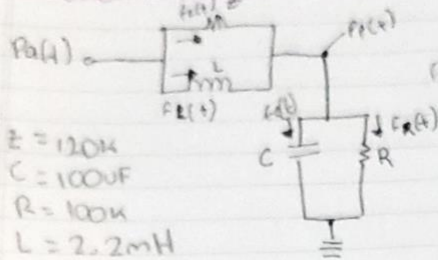 Fz(t) Z
Pa(t)
P1(t)
L
FL(t)
FC(t)
FR(t)
C
R
Z = 120K
C = 100UF
R = 100K
L = 2.2mH